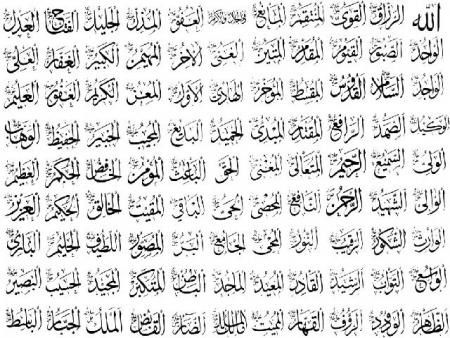 الله الرزاق القوي المنتقم المانع ذو الجلال والإكرام العفو المذل الجليل الفتاح العدل
الواحد الصبور القيوم المقدم المتين الغني الآخر المهيمن الكبير الغفار العلي
الواجد السلام القدوس المقسط المؤخر الهادي الأول المعز الكريم الغفور العليم
الوكيل الصمد الرافع المقتدر المبدئ الحميد البديع المجيب الخبير الحفيظ الوهاب
الولي السميع الرحيم المتعالي المغني الحق الباعث المؤمن الخافض الحكم العظيم
الوالي الشهيد الرحمن النافع المحصي الحي الباقي المقيت الخالق الحكيم العزيز
الوارث الشكور الرقيب النور المحيي الجامع البر المصور اللطيف الحليم البارئ
الواسع التواب الرشيد القادر المعيد الماجد الباطن المتكبر المجيد الحسيب البصير
الظاهر الودود الرؤوف القهار المميت مالك الملك الضار القابض الملك الجبار الباسط